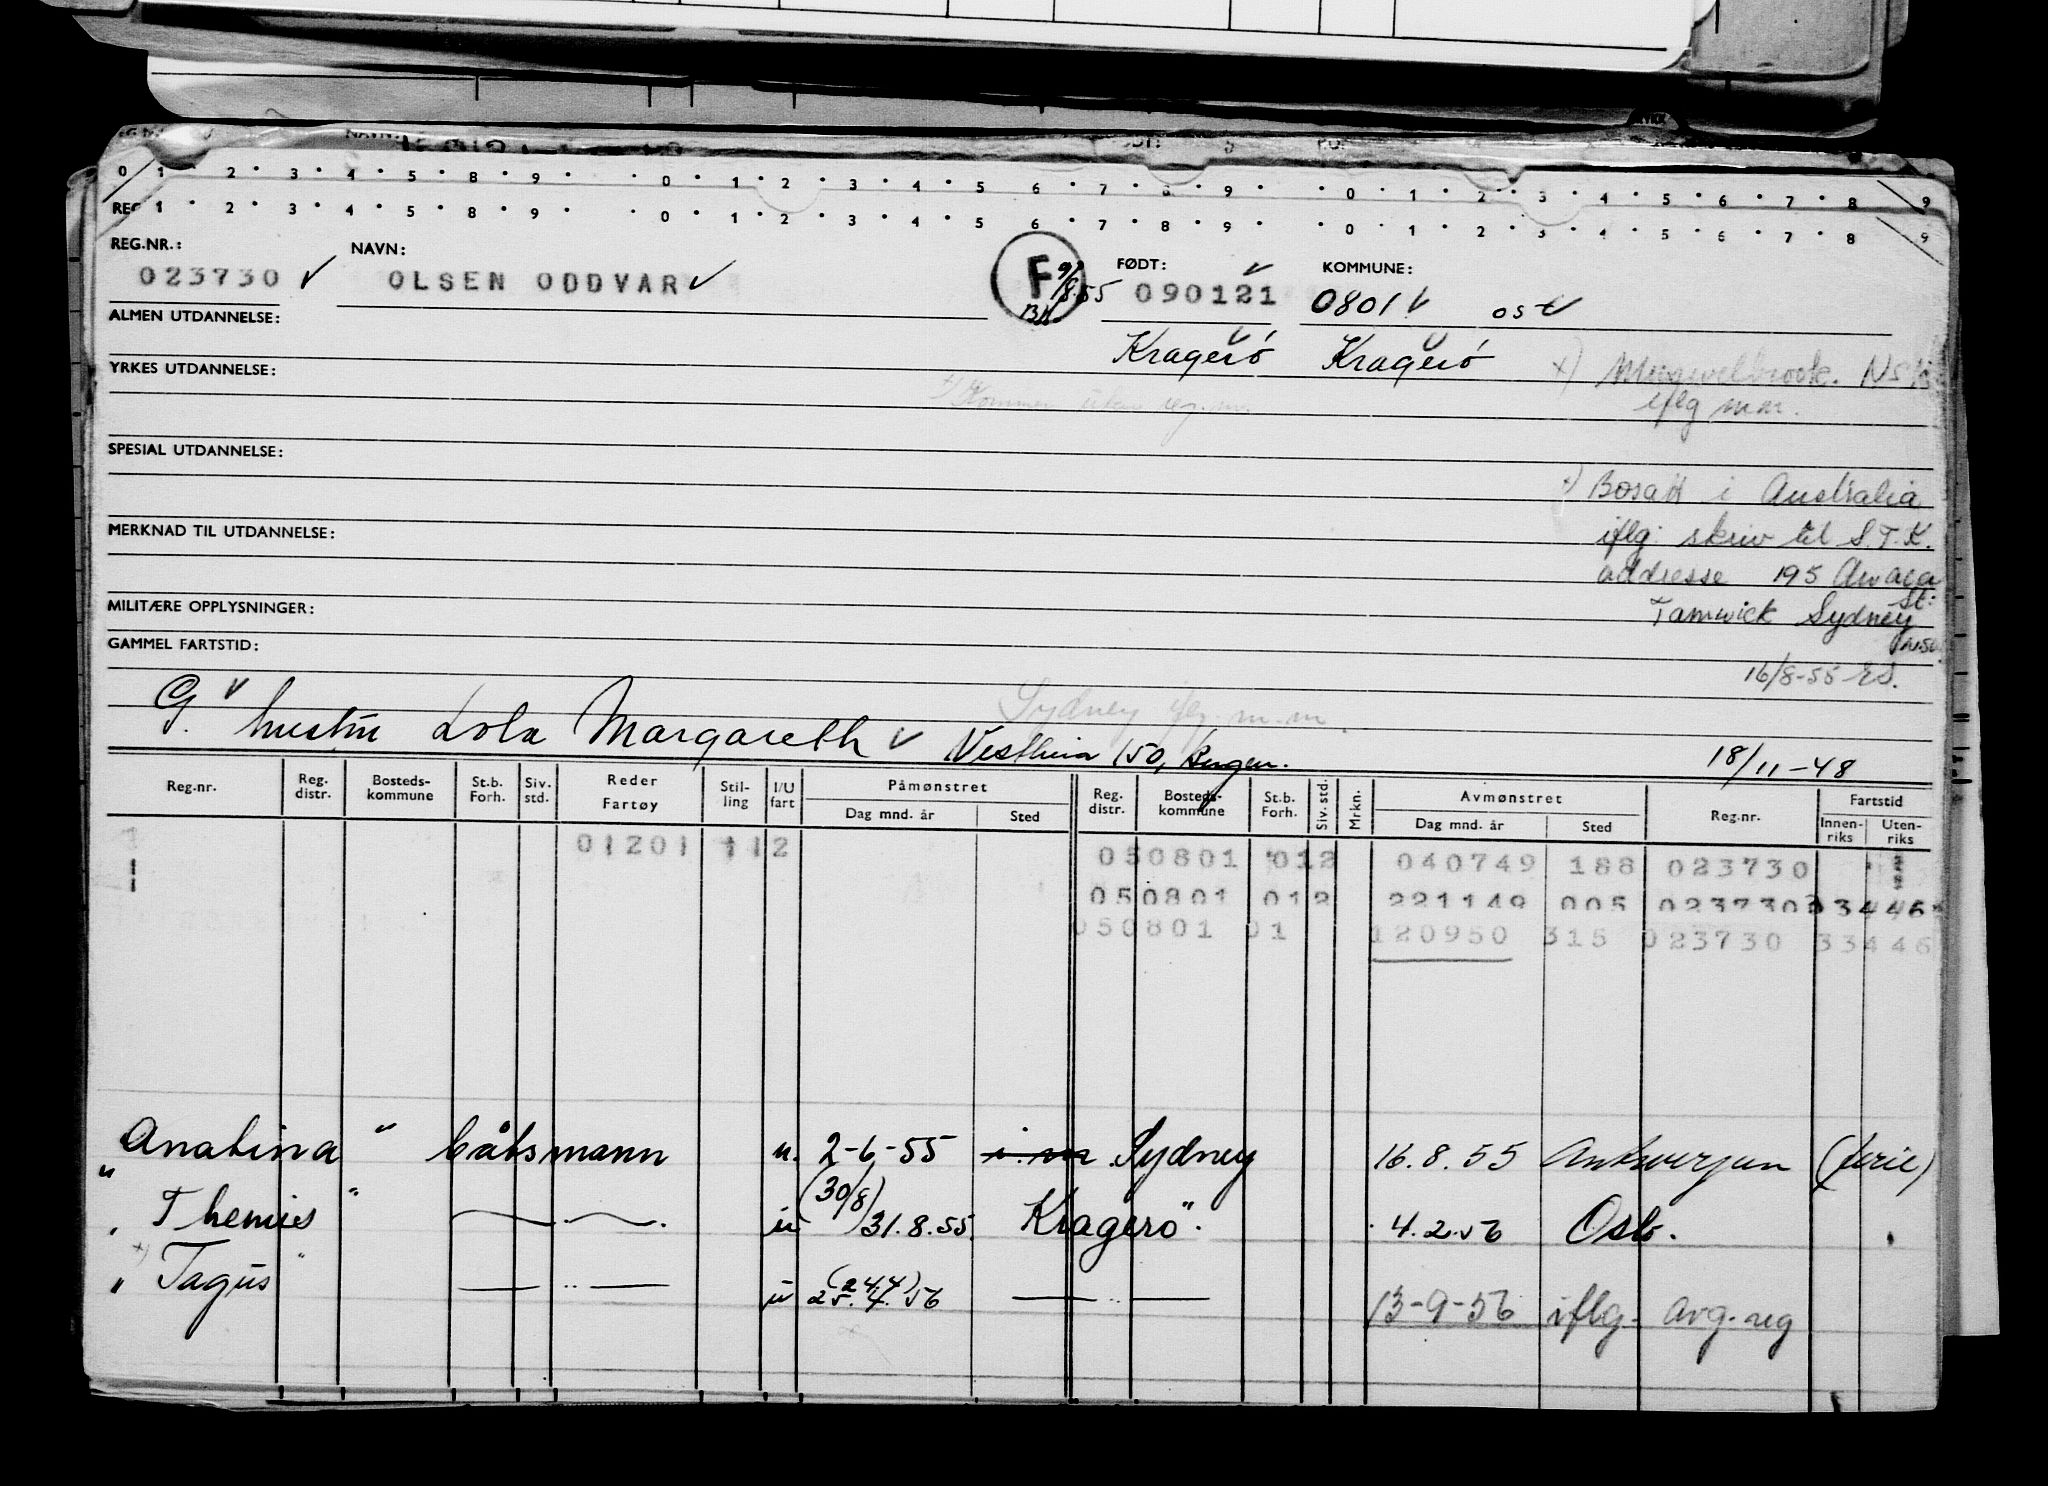 0 1 2 3 4 5 8 9 0 1 2 3 4 5 6 7 8 9 0 1 2 3 4 5 6 7 8 9
REG 1 2 3 4 5 8 9 0 1 2 3 4 5 6 7 8 9 0 1 2 3 4 5 6 7 8 9
REG.NR.: NAVN: F 9/8.55 FØDT: KOMMUNE:
023730 OLSEN ODDVAR 090121 0801 ost
ALMEN UTDANNELSE:
Kragerö Kragerö
YRKES UTDANNELSE:
iflg m.m.
SPESIAL UTDANNELSE:
Bosatt i Australia
MERKNAD TIL UTDANNELSE:
iflg: skriv til S.T.K.
addresse 195
MILITÆRE OPPLYSNINGER:
St:
Sydney
GAMMEL FARTSTID:
16/8-55
Sydney iflg. m.m
G. hustru Lola Margareth 150, 18/11-48
Reg.nr. Reg. distr. Bosteds-kommune St.b. Forh. Siv. std. Reder Fartøy Stil-ling I/U fart Påmønstret Dag mnd. år Sted Reg. distr. Bosteds-kommune St.b. Forh. Siv. std. Mrkn. Avmønstret Dag mnd. år Sted Reg.nr. Fartstid Innen-riks Uten-riks
01201 112 050801 012 040749 188 023730
050801 012 221149 005 023730 33446
050801 01 120950 315 023730 33446
" Anatina " båtsmann u. 2-6-55 i.m Sydney 16.8.55 Antwerpen (ferie)
" Themis " — " — u (30/8) 31.8.55 Kragerö. 4.2.56 Oslo.
" Tagus " — " — u (24.4) 25.4.56 — " — 13-9-56 iflg. avg. reg